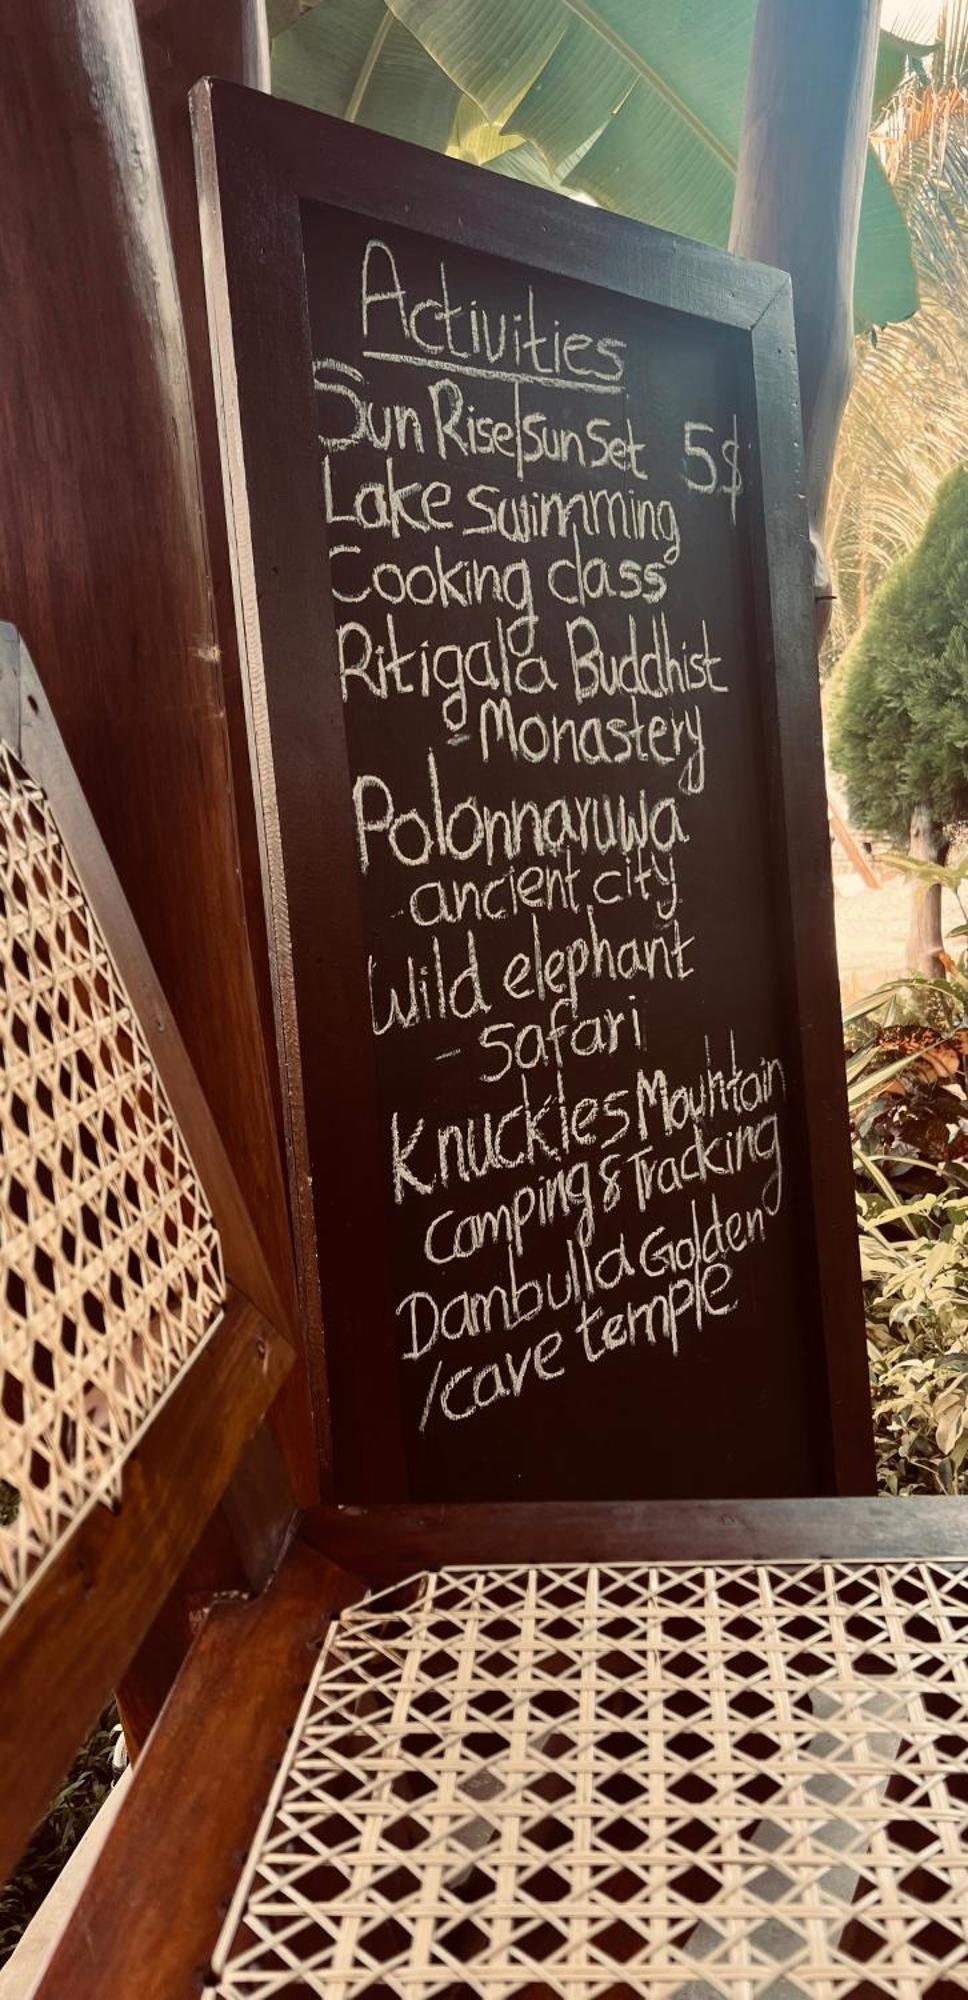 Activities
Sun Rise/sunset 5$
Lake swimming
Cooking class
Ritigala Buddhist
- Monastery
Polonnaruwa
- ancient city
Wild elephant
- safari
Knuckles Mountain
camping & Tracking
Dambulla Golden
/cave temple